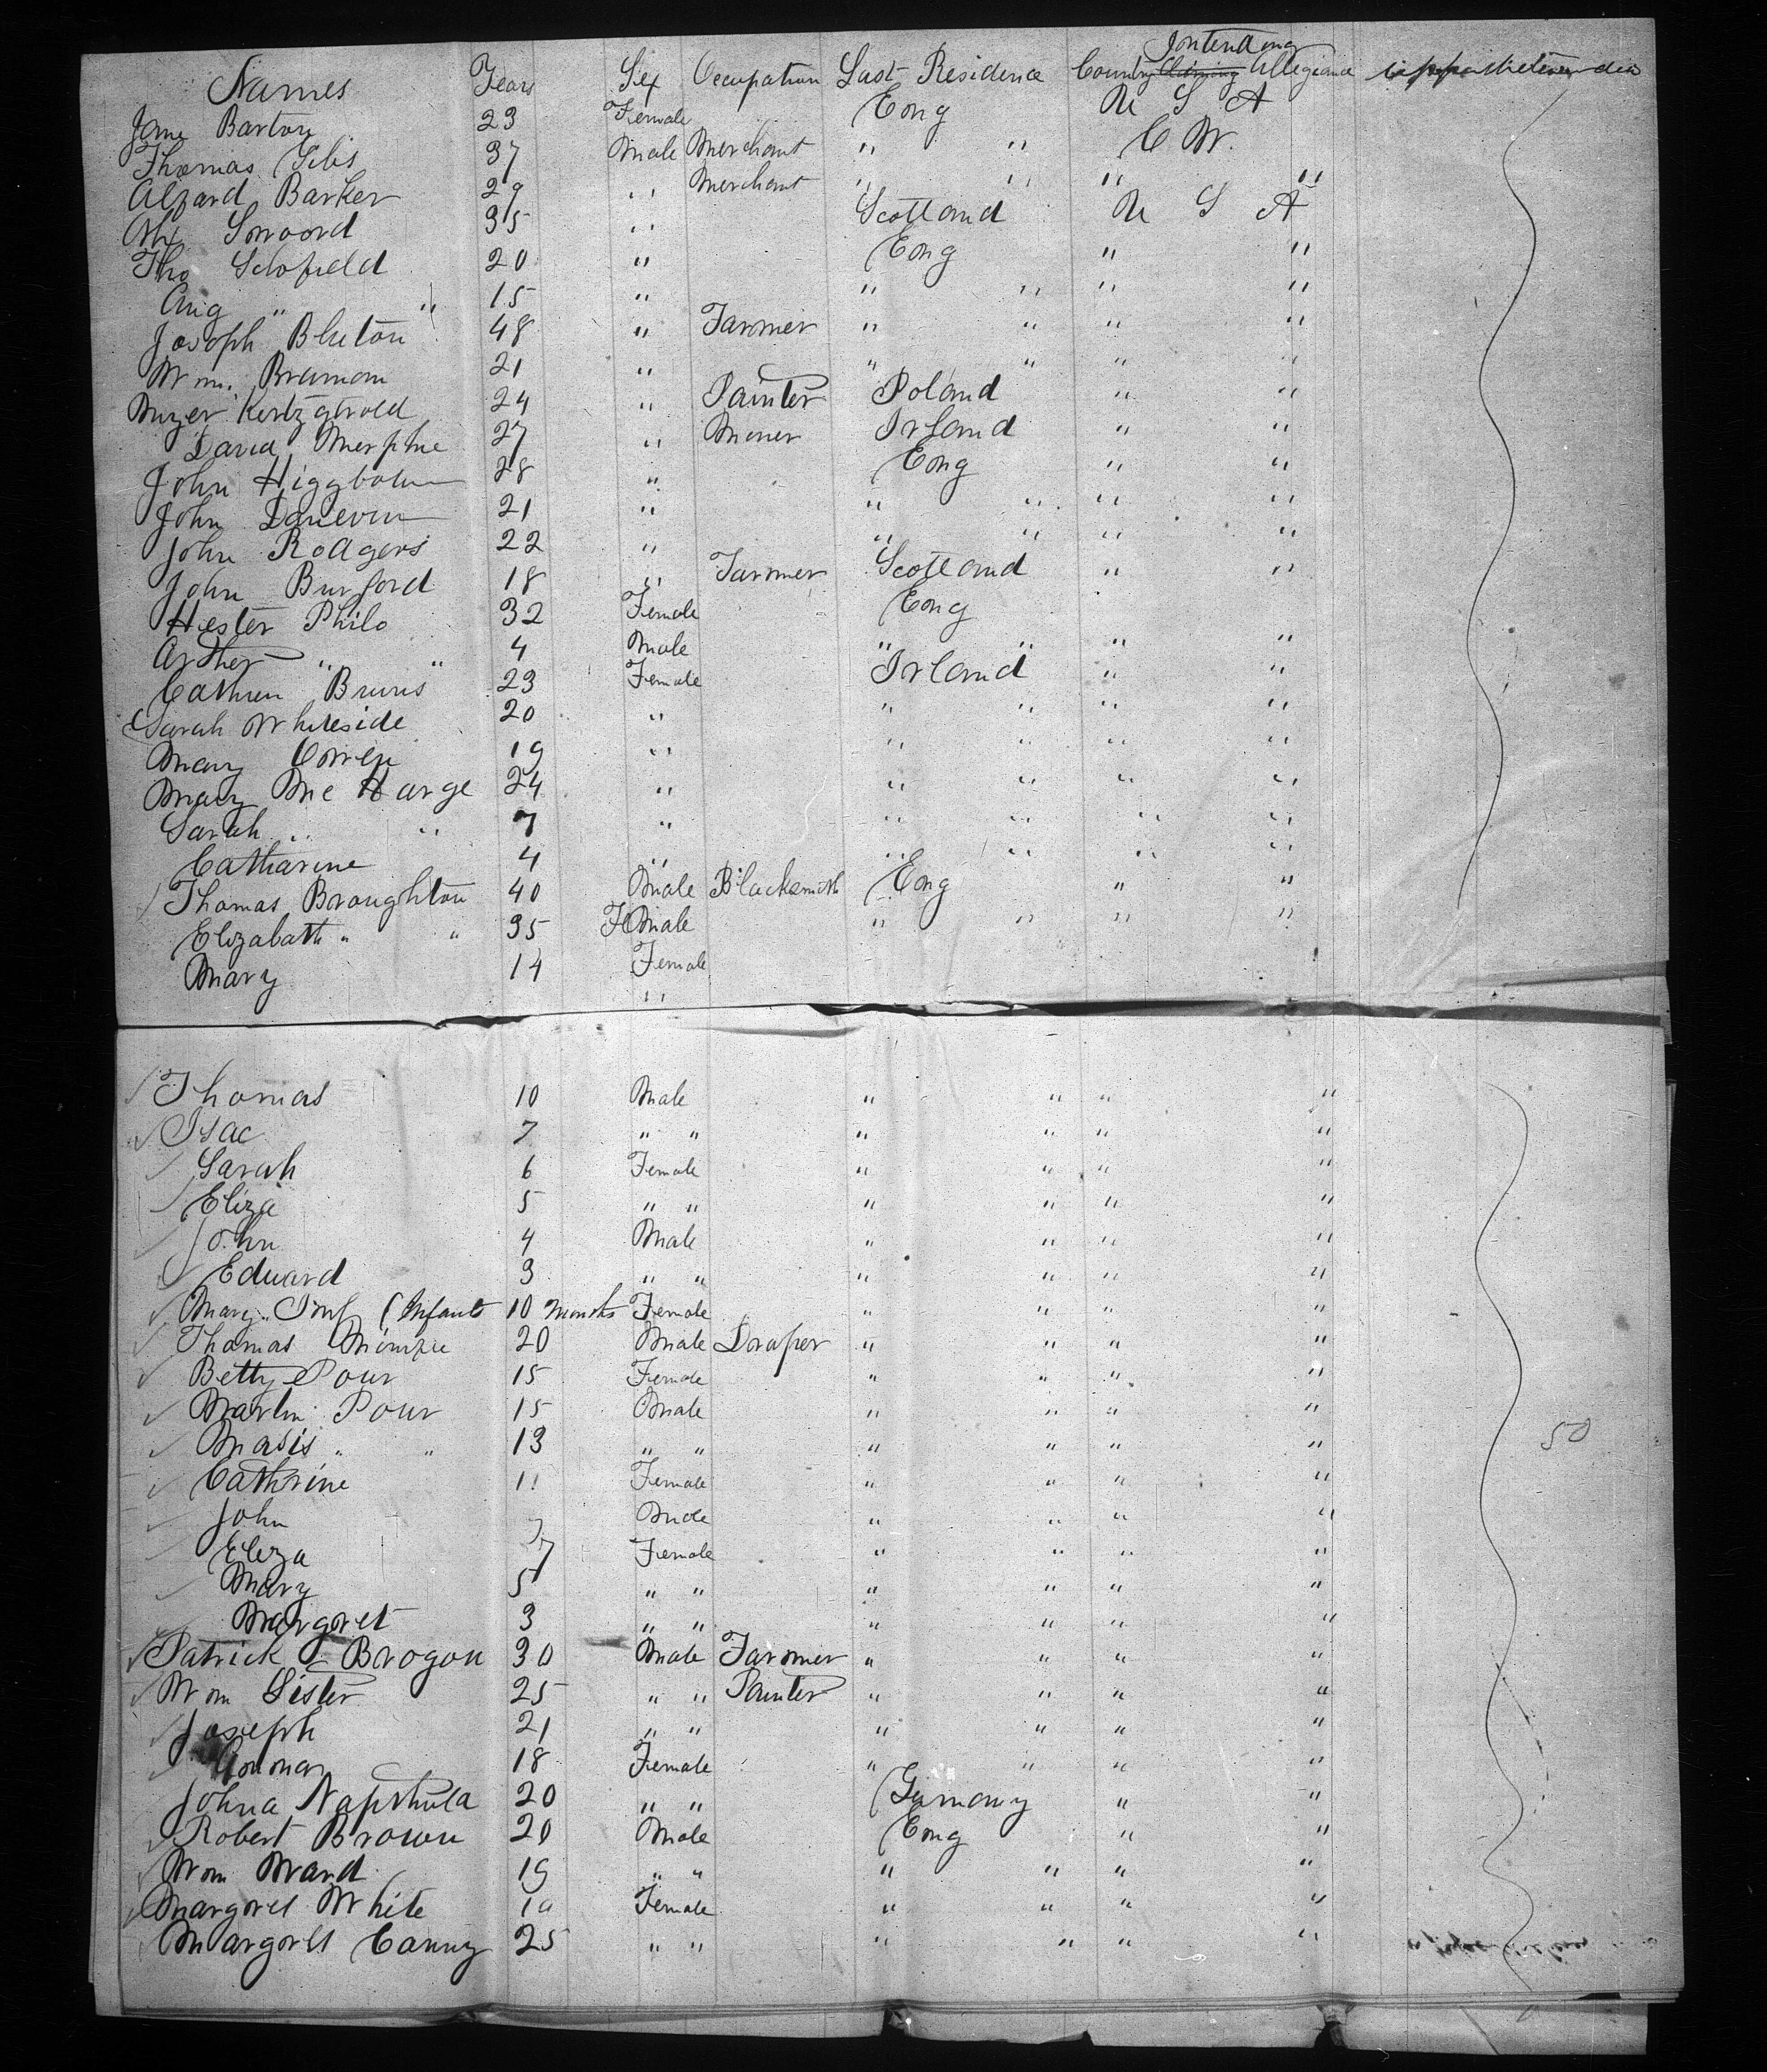 Names Years Sex Occupation Last Residence Country Claiming Intending Allegiance
Jane Barton 23 Female Eng U S A
Thomas 37 Male Merchant " " C W.
Alfard Barker 29 " " Merchant " " " "
35 " " Scotland U S A
Tho Schofield 20 " Eng " "
" " 15 " " " " "
Joseph Bluton 48 " Farmer " " " "
Wm. Braman 21 " " " " "
24 " Painter Poland " "
David Murphue 27 " Miner Irland " "
John Higgbotum 28 " Eng " "
John 21 " " " " "
John Rodgers 22 " " " " "
John Burford 18 " Farmer Scotland " "
Hester Philo 32 Female Eng
Arther " " 4 Male " " " "
Cathren Bruns 23 Female Irland " "
Sarah Whiteside 20 " " " " "
Mary 19 " " " " "
Mary Mc Harge 24 " " " " "
Sarah " " 7 " " " " "
Catharine 4 " " " " "
Thomas Broughton 40 Male Blacksmith Eng " "
Elizabath " " 35 FeMale " " " "
Mary 14 Female
" "
Thomas 10 Male " " " "
Isac 7 " " " " " "
Sarah 6 Female " " " "
Eliza 5 " " " " " "
John 4 Male " " " "
Edward 3 " " " " " "
Mary (Infants 10 months Female " " " "
Thomas 20 Male Draper " " " "
Betty Pour 15 Female " " " "
Martin Pour 15 Male " " " "
" " 13 " " " " " "
50
Cathrine 11 Female " " " "
John Male " " " "
Eliza 7 Female " " " "
Mary 5 " " " " " "
Margret 3 " " " " " "
Patrick Brogon 30 Male Farmer " " " "
Wm Sister 25 " " Painter " " " "
Joseph 21 " " " " " "
18 Female " " " "
Johna Napthula 20 " " Gamony " "
Robert Brown 20 Male Eng " "
Wm Ward 19 " " " " " "
Margret White Female " " " "
Margret Canny 25 " " " " " "